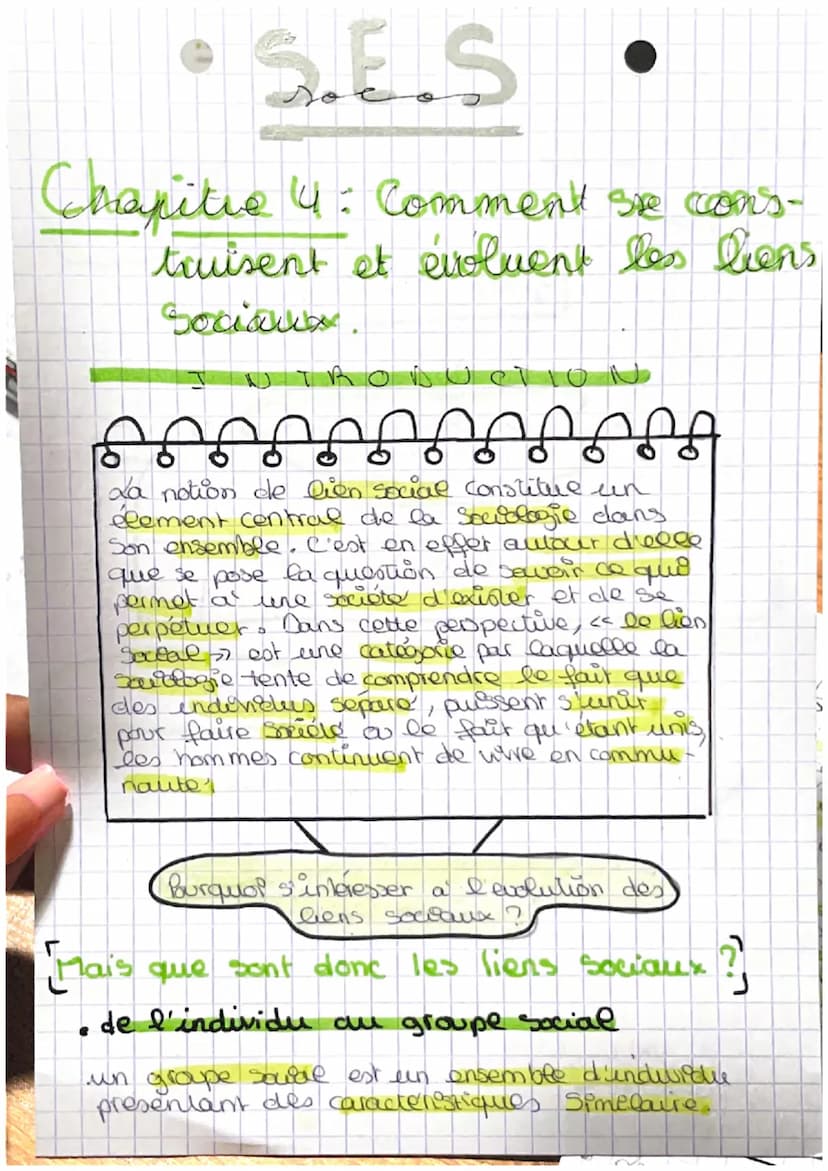 SES
socio
Chapitre 4 : Comment se cons-
truisent et évoluent les liens
sociaux.
INTRODUCTION
La notion de lien social constitue un
élement central de la sociologie dans
son ensemble. C'est en effet autour d'elle
que se pose la question de savoir ce qui
permet à une société d'exister et de se
perpétuer. Dans cette perspective, << le lien
social >> est une catégorie par laquelle la
sociologie tente de comprendre le fait que
des individus séparé, puissent s'unir
pour faire société ou le fait qu'étant unis,
les hommes continuent de vivre en commu-
nauté.
Pourquoi s'intéresser à l'évolution des
liens sociaux ?
[Mais que sont donc les liens sociaux ?]
• de l'individu au groupe social
un groupe social est un ensemble d'individu
présentant des caractéristiques similaire.